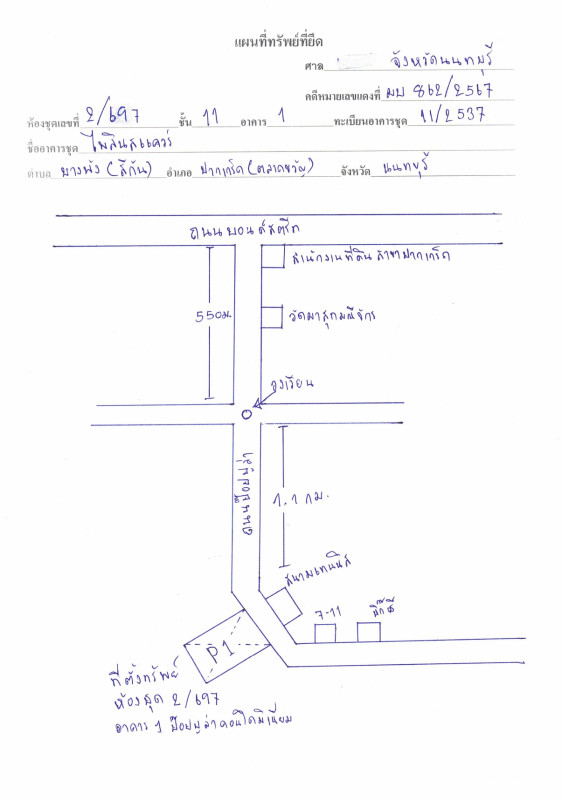 แผนที่ทรัพย์ที่ยึด
ศาล จังหวัดนนทบุรี
คดีหมายเลขแดงที่ ผบ 862/2567
ห้องชุดเลขที่ 2/697 ชั้น 11 อาคาร 1 ทะเบียนอาคารชุด 11/2537
ชื่ออาคารชุด ไพลินสแควร์
ตำบล บางพัง (สีกัน) อำเภอ ปากเกร็ด (ตลาดขวัญ) จังหวัด นนทบุรี
ถนนบอนด์สตรีท
สำนักงานที่ดิน สาขาปากเกร็ด
550ม.
วัดผาสุกมณีจักร
วงเวียน
ถนนป๊อปปูล่า
1.1 กม.
สนามเทนนิส
7-11
บิ๊กซี
P1
ที่ตั้งทรัพย์
ห้องชุด 2/697
อาคาร 1 ป๊อปปูล่าคอนโดมิเนียม